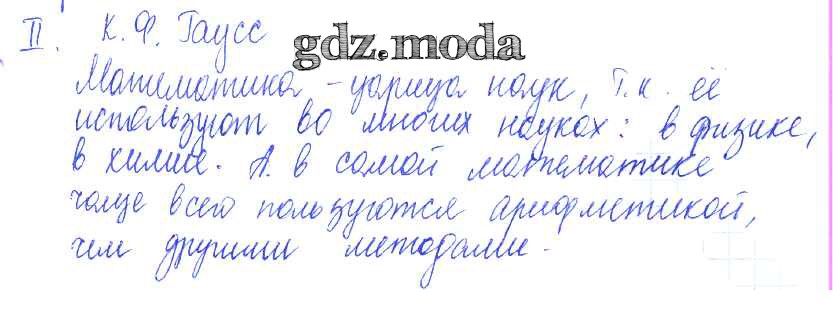 II. К. Ф. Гаусс
gdz.moda
Математика - царица наук, т.к. её
используют во многих науках: в физике,
в химие. А в самой математике
чаще всего пользуются арифметикой,
чем другими методами.